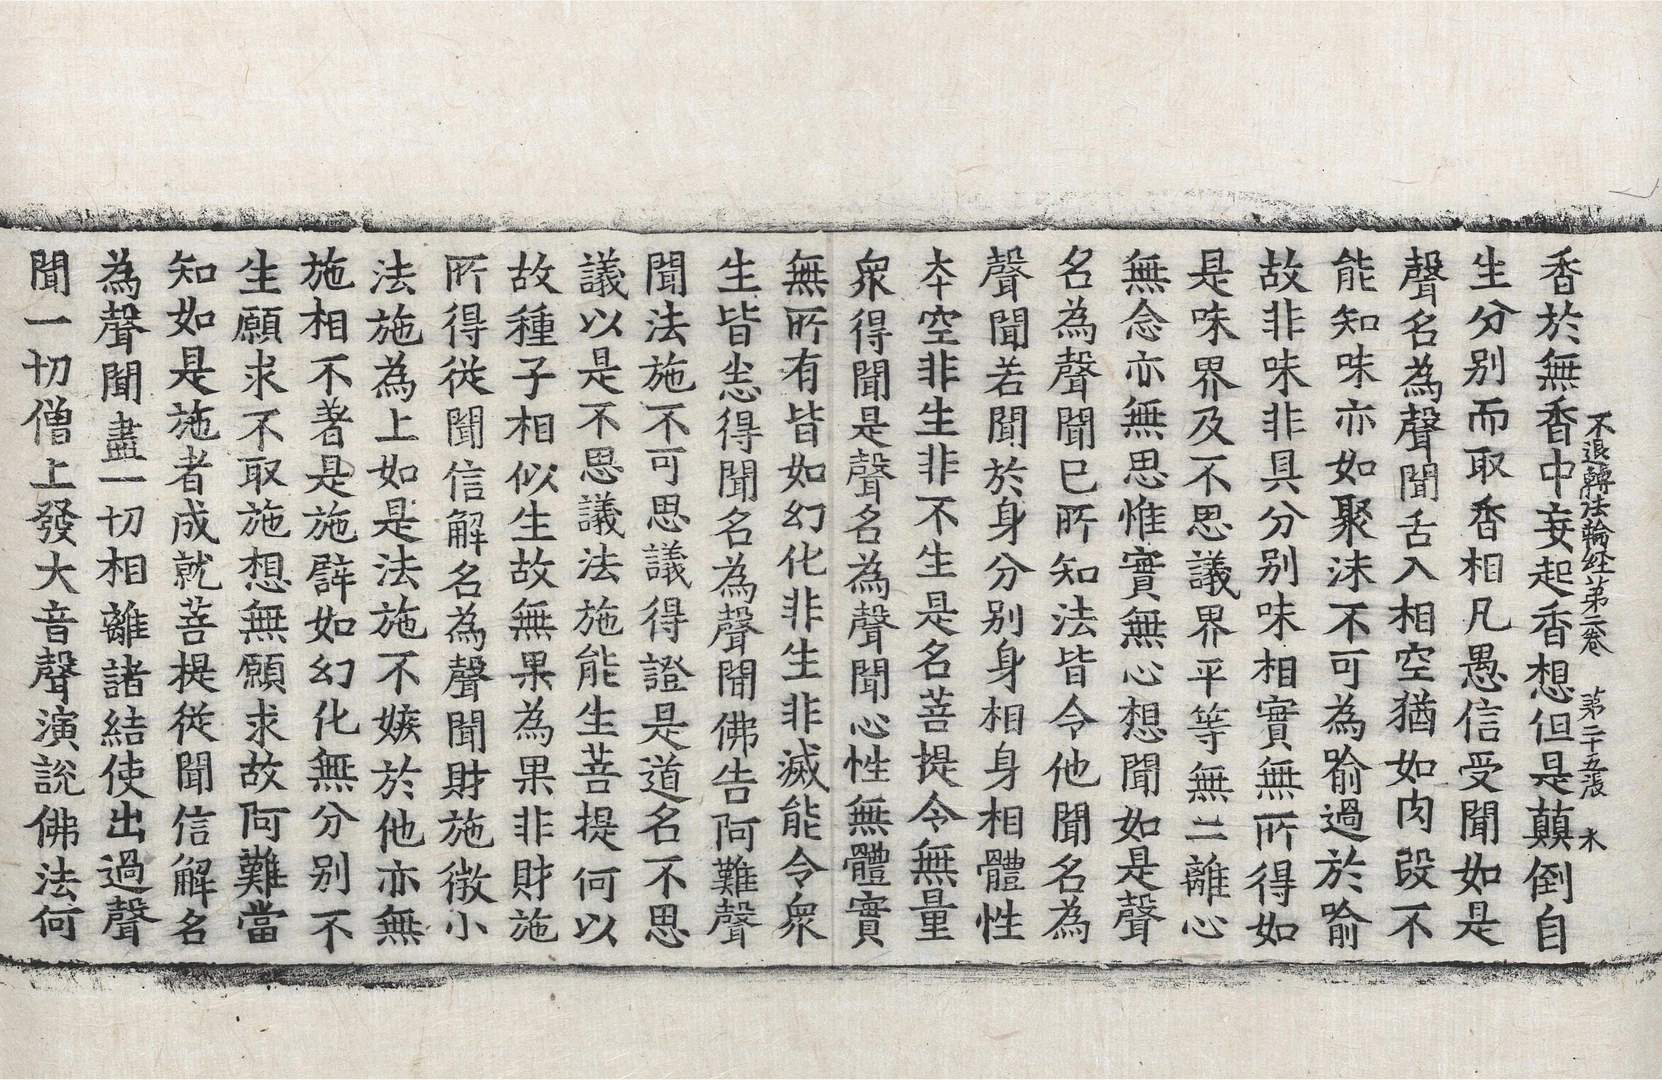 不退轉法輪経第二卷 第二十五張 木
香於無香中妄起香想但是顛倒自
生分別而取香相凡愚信受聞如是
聲名為聲聞舌入相空猶如肉段不
能知味亦如聚沫不可為喻過於喻
故非味非具分別味相實無所得如
是味界及不思議界平等無二離心
無念亦無思惟實無心想聞如是聲
名為聲聞已所知法皆令他聞名為
聲聞若聞於身分別身相身相體性
本空非生非不生是名菩提令無量
衆得聞是聲名為聲聞心性無體實
無所有皆如幻化非生非滅能令衆
生皆悉得聞名為聲聞佛告阿難聲
聞法施不可思議得證是道名不思
議以是不思議法施能生菩提何以
故種子相似生故無果為果非財施
所得從聞信解名為聲聞財施微小
法施為上如是法施不嫉於他亦無
施相不著是施譬如幻化無分別不
生願求不取施想無願求故阿難當
知如是施者成就菩提從聞信解名
為聲聞盡一切相離諸結使出過聲
聞一切僧上發大音聲演說佛法何